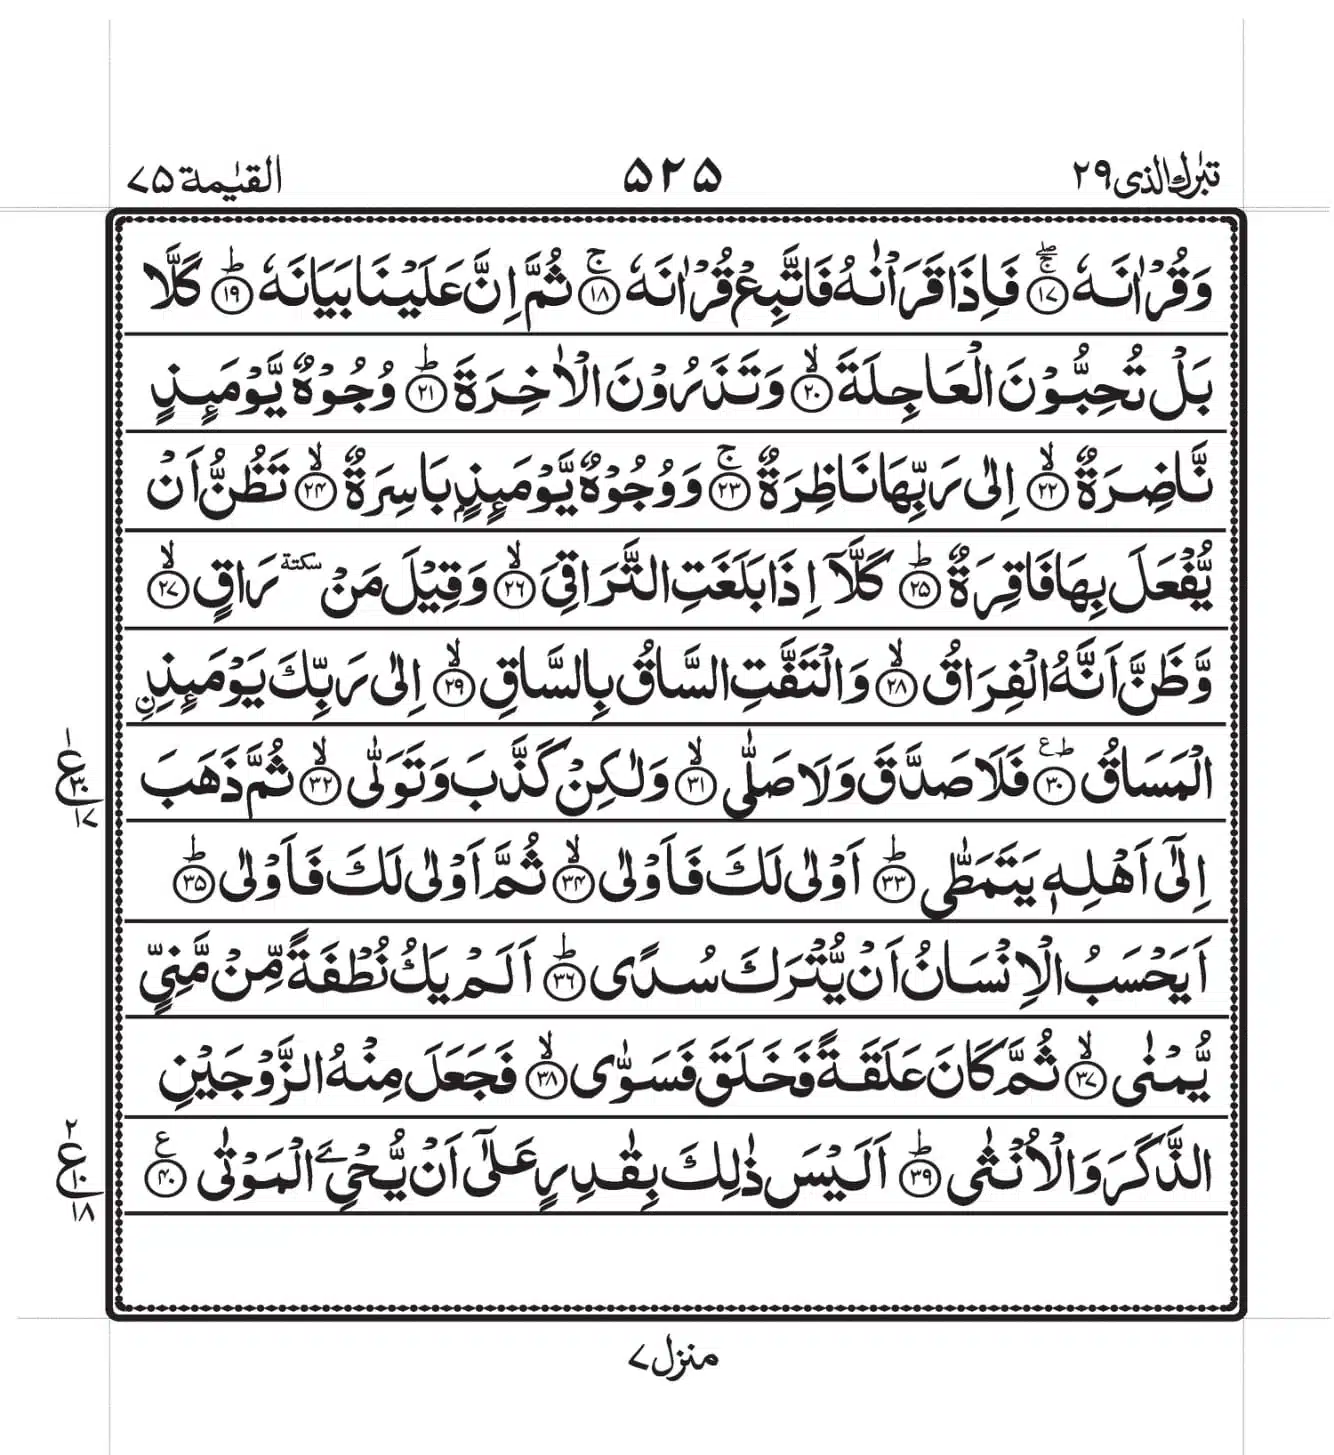 تبٰرك الذی ۲۹ ۵۲۵ القیٰمة ۷۵
وَقُرْاٰنَهٗ ۱۷ۚۖ فَاِذَا قَرَاْنٰهُ فَاتَّبِعْ قُرْاٰنَهٗ ۱۸ۚ ثُمَّ اِنَّ عَلَیْنَا بَیَانَهٗ ۱۹ؕ كَلَّا
بَلْ تُحِبُّوْنَ الْعَاجِلَةَ ۲۰ۙ وَتَذَرُوْنَ الْاٰخِرَةَ ۲۱ؕ وُجُوْهٌ یَّوْمَىِٕذٍ
نَّاضِرَةٌ ۲۲ۙ اِلٰی رَبِّهَا نَاظِرَةٌ ۲۳ۚ وَوُجُوْهٌ یَّوْمَىِٕذٍۭ بَاسِرَةٌ ۲۴ۙ تَظُنُّ اَنْ
یُّفْعَلَ بِهَا فَاقِرَةٌ ۲۵ؕ كَلَّاۤ اِذَا بَلَغَتِ التَّرَاقِیَ ۲۶ۙ وَقِیْلَ مَنْ سکتة رَاقٍ ۲۷ۙ
وَّظَنَّ اَنَّهُ الْفِرَاقُ ۲۸ۙ وَالْتَفَّتِ السَّاقُ بِالسَّاقِ ۲۹ۙ اِلٰی رَبِّكَ یَوْمَىِٕذِ ࣙ
الْمَسَاقُ ۳۰ؕع فَلَا صَدَّقَ وَلَا صَلّٰی ۳۱ۙ وَلٰكِنْ كَذَّبَ وَتَوَلّٰی ۳۲ۙ ثُمَّ ذَهَبَ
۱ ع ۳۰ ۱۷
اِلٰۤی اَهْلِهٖ یَتَمَطّٰی ۳۳ؕ اَوْلٰی لَكَ فَاَوْلٰی ۳۴ۙ ثُمَّ اَوْلٰی لَكَ فَاَوْلٰی ۳۵ؕ
اَیَحْسَبُ الْاِنْسَانُ اَنْ یُّتْرَكَ سُدًی ۳۶ؕ اَلَمْ یَكُ نُطْفَةً مِّنْ مَّنِیٍّ
یُّمْنٰی ۳۷ۙ ثُمَّ كَانَ عَلَقَةً فَخَلَقَ فَسَوّٰی ۳۸ۙ فَجَعَلَ مِنْهُ الزَّوْجَیْنِ
الذَّكَرَ وَالْاُنْثٰی ۳۹ؕ اَلَیْسَ ذٰلِكَ بِقٰدِرٍ عَلٰۤی اَنْ یُّحْیِۦَ الْمَوْتٰی ۴۰ع
۲ ع ۱۰ ۱۸
منزل ۷